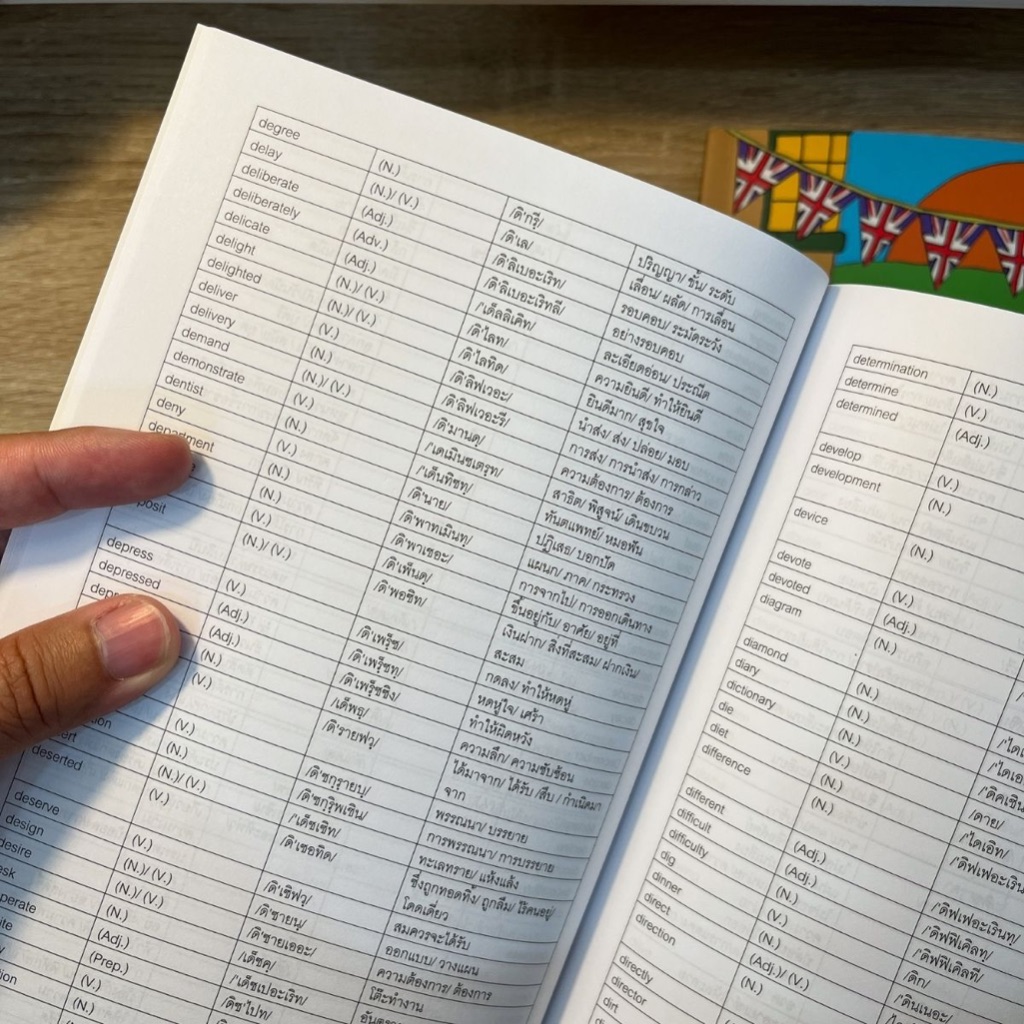 degree (N.) /ดิ'กรี/ ปริญญา/ ชั้น/ ระดับ
delay (N.)/ (V.) /ดิ'เล/ เลื่อน/ ผลัด/ การเลื่อน
deliberate (Adj.) /ดิ'ลิเบอะเริท/ รอบคอบ/ ระมัดระวัง
deliberately (Adv.) /ดิ'ลิเบอะเริทลี/ อย่างรอบคอบ
delicate (Adj.) /'เด็ลลิเคิท/ ละเอียดอ่อน/ ประณีต
delight (N.)/ (V.) /ดิ'ไลท/ ความยินดี/ ทำให้ยินดี
delighted (N.)/ (V.) /ดิ'ไลทิด/ ยินดีมาก/ สุขใจ
deliver (V.) /ดิ'ลิฟเวอะ/ นำส่ง/ ส่ง/ ปล่อย/ มอบ
delivery (N.) /ดิ'ลิฟเวอะรี/ การส่ง/ การนำส่ง/ การกล่าว
demand (N.)/ (V.) /ดิ'มานดฺ/ ความต้องการ/ ต้องการ
demonstrate (V.) /'เดเมินซเตรฺท/ สาธิต/ พิสูจน์/ เดินขบวน
dentist (N.) /'เด็นทิซทฺ/ ทันตแพทย์/ หมอฟัน
deny (V.) /ดิ'นาย/ ปฏิเสธ/ บอกปัด
department (N.) /ดิ'พาทเมินทฺ/ แผนก/ ภาค/ กระทรวง
(N.) /ดิ'พาเชอะ/ การจากไป/ การออกเดินทาง
(V.) /ดิ'เพ็นดฺ/ ขึ้นอยู่กับ/ อาศัย/ อยู่ที่
posit (N.)/ (V.) /ดิ'พอซิท/ เงินฝาก/ สิ่งที่สะสม/ ฝากเงิน/
สะสม
depress (V.) /ดิ'เพรฺ็ซ/ กดลง/ ทำให้หดหู่
depressed (Adj.) /ดิ'เพรฺ็ซทฺ/ หดหู่ใจ/ เศร้า
depr (Adj.) /ดิ'เพรฺ็ซซิง/ ทำให้ผิดหวัง
(N.) /เด็พธฺ/ ความลึก/ ความซับซ้อน
(V.) /ดิ'รายฟวฺ/ ได้มาจาก/ ได้รับ /สืบ / กำเนิดมา
จาก
(V.) /ดิ'ซกฺรายบฺ/ พรรณนา/ บรรยาย
tion (N.) /ดิ'ซกฺริพเชิน/ การพรรณนา/ การบรรยาย
ert (N.)/ (V.) /'เด็ซเซิท/ ทะเลทราย/ แห้งแล้ง
deserted (V.) /ดิ'เซอทิด/ ซึ่งถูกทอดทิ้ง/ ถูกลืม/ ไร้คนอยู่/
โดดเดี่ยว
deserve (V.) /ดิ'เซิฟวฺ/ สมควรจะได้รับ
design (N.)/ (V.) /ดิ'ซายนฺ/ ออกแบบ/ วางแผน
esire (N.)/ (V.) /ดิ'ซายเออะ/ ความต้องการ/ ต้องการ
esk (N.) /เด็ซคฺ/ โต๊ะทำงาน
perate (Adj.) /'เด็ซเปอะเริท/
ite (Prep.) /ดิซ'ไปท/
y (V.)
ion (N.)
determination (N.)
determine (V.)
determined (Adj.)
develop (V.)
development (N.)
device (N.)
devote (V.)
devoted (Adj.)
diagram (N.)
diamond (N.)
diary (N.)
dictionary (N.)
die (V.) /ดาย/
diet (N.) /'ไดเอิท/
difference (N.)
different (Adj.)
difficult (Adj.) /'ดิฟฟิเคิลทฺ/
difficulty (N.) /'ดิฟฟิเคิลที/
dig (V.) /ดิก/
dinner (N.) /'ดินเนอะ/
direct (Adj.)/ (V.)
direction (N.)
directly
director
dirt